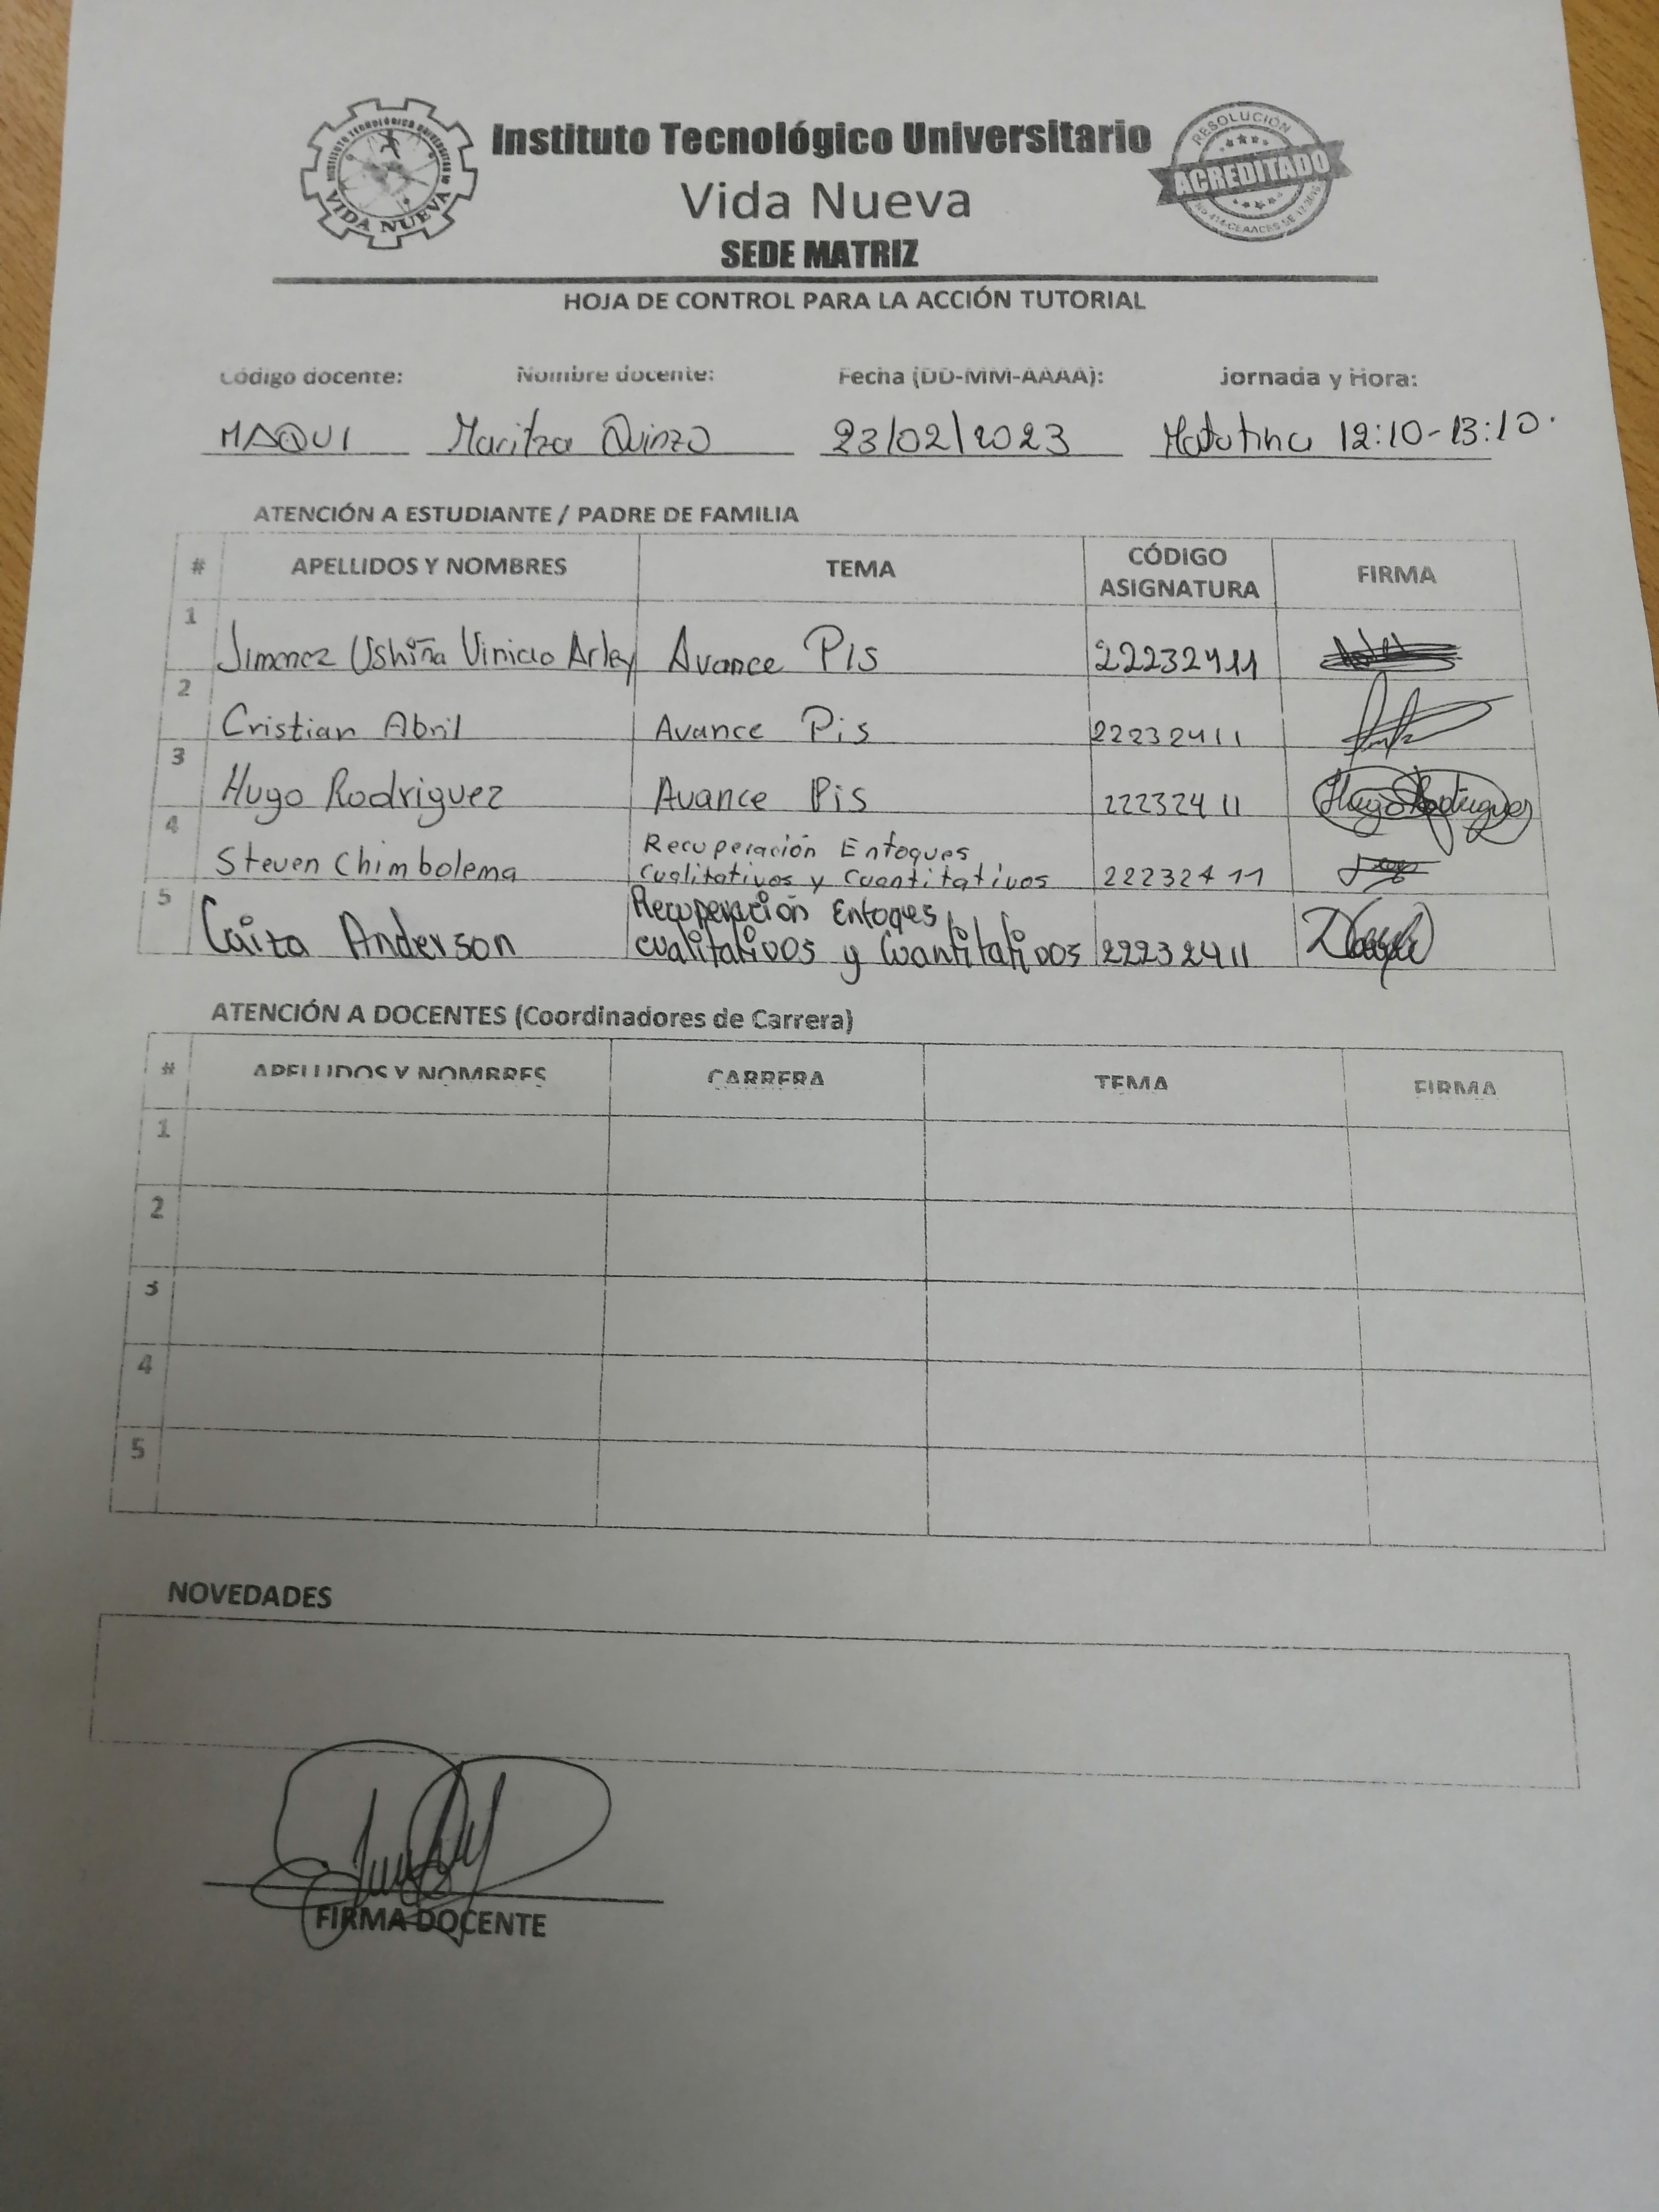 INSTITUTO TECNOLÓGICO UNIVERSITARIO
VIDA NUEVA
Instituto Tecnológico Universitario
Vida Nueva
SEDE MATRIZ
RESOLUCIÓN
ACREDITADO
HOJA DE CONTROL PARA LA ACCIÓN TUTORIAL
Código docente: Nombre docente: Fecha (DD-MM-AAAA): Jornada y Hora:
MAQUI Maritza Quinzo 23/02/2023 Matutina 12:10-13:10.
ATENCIÓN A ESTUDIANTE / PADRE DE FAMILIA
# APELLIDOS Y NOMBRES TEMA CÓDIGO ASIGNATURA FIRMA
1 Jimenez Ushiña Vinicio Arley Avance Pis 22232411
2 Cristian Abril Avance Pis 22232411
3 Hugo Rodriguez Avance Pis 22232411 Hugo Rodriguez
4 Steven Chimbolema Recuperación Enfoques
Cualitativos y Cuantitativos 22232411
5 Caiza Anderson Recuperación Enfoques
cualitativos y Cuantitativos 22232411
ATENCIÓN A DOCENTES (Coordinadores de Carrera)
# APELLIDOS Y NOMBRES CARRERA TEMA FIRMA
1
2
3
4
5
NOVEDADES
FIRMA DOCENTE